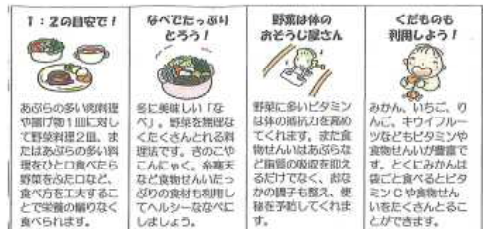 1:2の目安で!
あぶらの多い肉料理
や揚げ物1皿に対し
て野菜料理2皿、ま
たはあぶらの多い料
理をひと口食べたら
野菜をふた口など、
食べ方を工夫するこ
とで栄養の偏りなく
食べられます。
なべでたっぷり
とろう!
冬に美味しい「な
べ」。野菜を無理な
くたくさんとれる料
理法です。きのこや
こんにゃく、糸寒天
など食物せんいたっ
ぷりの食材も利用し
てヘルシーななべに
しましょう。
野菜は体の
おそうじ屋さん
野菜に多いビタミン
は体の抵抗力を高め
てくれます。また食
物せんいはあぶらな
ど脂質の吸収を抑え
るだけでなく、おな
かの調子も整え、便
秘を予防してくれま
す。
くだものも
利用しよう!
みかん、いちご、り
んご、キウイフルー
ツなどもビタミンや
食物せんいが豊富で
す。とくにみかんは
袋ごと食べるとビタ
ミンCや食物せん
いをたくさんとるこ
とができます。